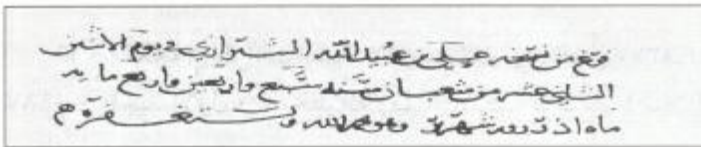 فرغ من نسخه علي بن عبد الله الشيرازي في يوم الاثنين
الثاني عشر من شعبان سنه سبع واربعين واربع مايه
ماه اذر روز وهو يحمد الله ويستغفره